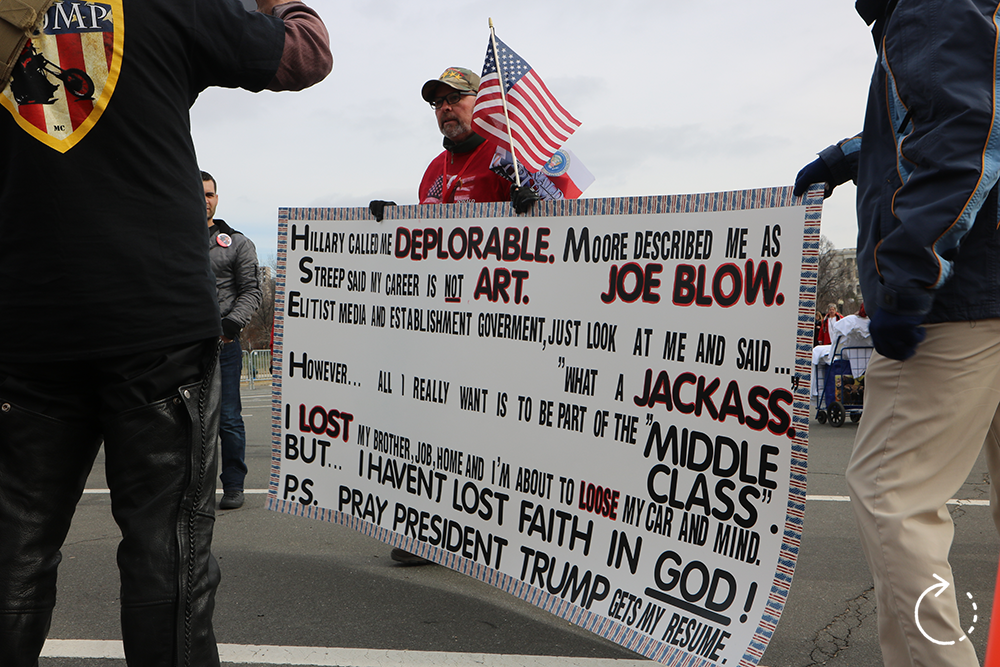 TRUMP
MC
HILLARY CALLED ME DEPLORABLE. MOORE DESCRIBED ME AS
STREEP SAID MY CAREER IS NOT ART. JOE BLOW.
ELITIST MEDIA AND ESTABLISHMENT GOVERMENT, JUST LOOK AT ME AND SAID...
"WHAT A JACKASS."
HOWEVER... ALL I REALLY WANT IS TO BE PART OF THE "MIDDLE
CLASS".
I LOST MY BROTHER, JOB, HOME AND I'M ABOUT TO LOOSE MY CAR AND MIND.
BUT... I HAVENT LOST FAITH IN GOD!
P.S. PRAY PRESIDENT TRUMP GETS MY RESUME.